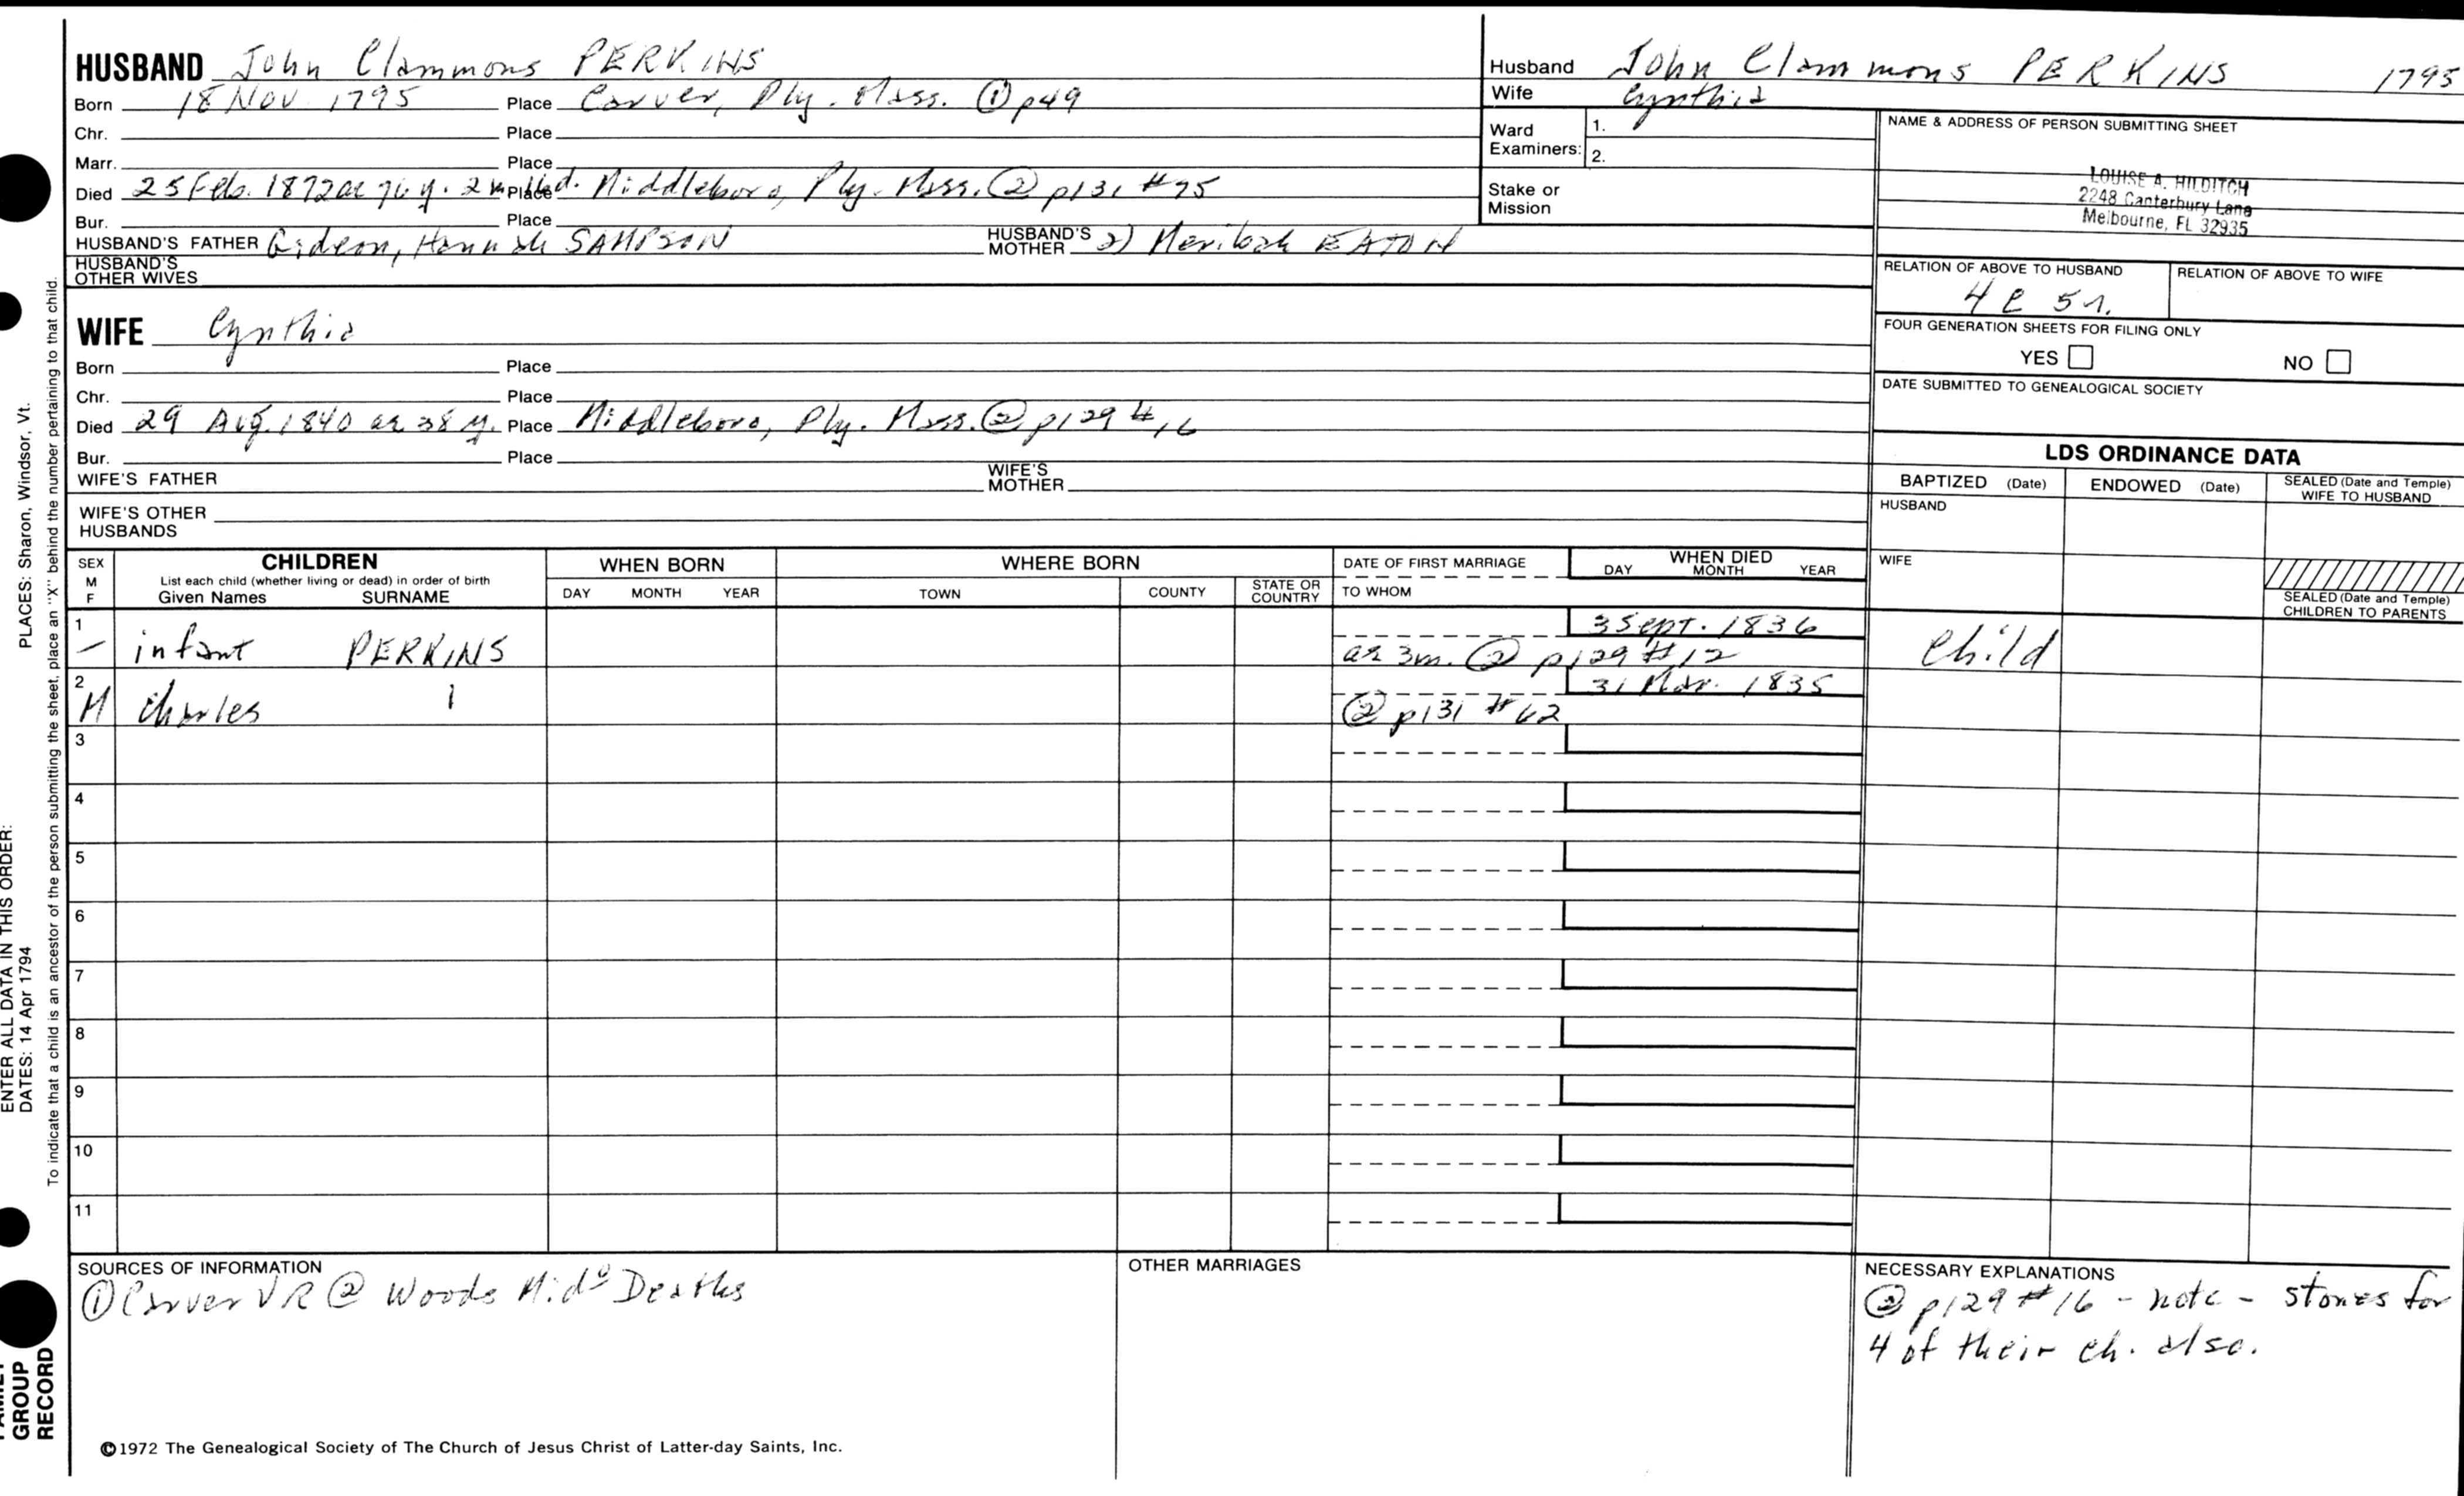 HUSBAND John Clammons PERKINS
Born 18 Nov 1795 Place Carver, Ply. Mass. ① p49
Chr. Place
Marr. Place
Died 25 Feb. 1872 ae 76 y. 2 m. Place Middleboro, Ply. Mass. ② p131 #75
Bur. Place
HUSBAND'S FATHER Gideon, Hannah SAMPSON HUSBAND'S MOTHER 2) EATON
HUSBAND'S OTHER WIVES
WIFE Cynthia
Born Place
Chr. Place
Died 29 Aug. 1840 ae 38 y. Place Middleboro, Ply. Mass. ② p129 #16
Bur. Place
WIFE'S FATHER WIFE'S MOTHER
WIFE'S OTHER HUSBANDS
Husband John Clammons PERKINS 1795
Wife Cynthia
Ward Examiners: 1.
2.
Stake or Mission
NAME & ADDRESS OF PERSON SUBMITTING SHEET
LOUISE A. HILDITCH
2248 Canterbury Lane
Melbourne, FL 32935
RELATION OF ABOVE TO HUSBAND RELATION OF ABOVE TO WIFE
4 C 5 r.
FOUR GENERATION SHEETS FOR FILING ONLY
YES NO
DATE SUBMITTED TO GENEALOGICAL SOCIETY
LDS ORDINANCE DATA
BAPTIZED (Date) ENDOWED (Date) SEALED (Date and Temple) WIFE TO HUSBAND
HUSBAND
WIFE
SEALED (Date and Temple) CHILDREN TO PARENTS
SEX M F CHILDREN WHEN BORN WHERE BORN DATE OF FIRST MARRIAGE WHEN DIED
List each child (whether living or dead) in order of birth
Given Names SURNAME DAY MONTH YEAR TOWN COUNTY STATE OR COUNTRY TO WHOM DAY MONTH YEAR
1 3 Sept. 1836
– infant PERKINS ae 3m. ② p129 #12 Child
2 31 Mar. 1835
M Charles ② p131 #62
3
4
5
6
7
8
9
10
11
SOURCES OF INFORMATION
① Carver VR ② Woods Mid° Deaths
OTHER MARRIAGES
NECESSARY EXPLANATIONS
② p129 #16 - note - stones for
4 of their ch. also.
©1972 The Genealogical Society of The Church of Jesus Christ of Latter-day Saints, Inc.
ENTER ALL DATA IN THIS ORDER:
DATES: 14 Apr 1794 PLACES: Sharon, Windsor, Vt.
To indicate that a child is an ancestor of the person submitting the sheet, place an "X" behind the number pertaining to that child.
GROUP
RECORD